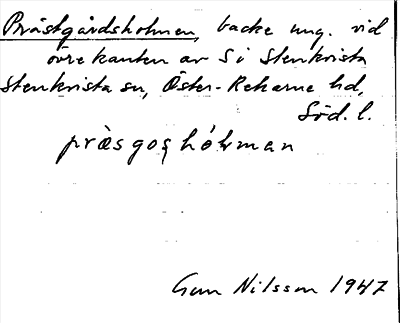 Prästgårdsholmen, backe ung. vid
övre kanten av S i Stenkvista
Stenkvista sn, Öster-Rekarne hd,
Söd. l.
pràsgos̨hólman
Gun Nilsson 1947